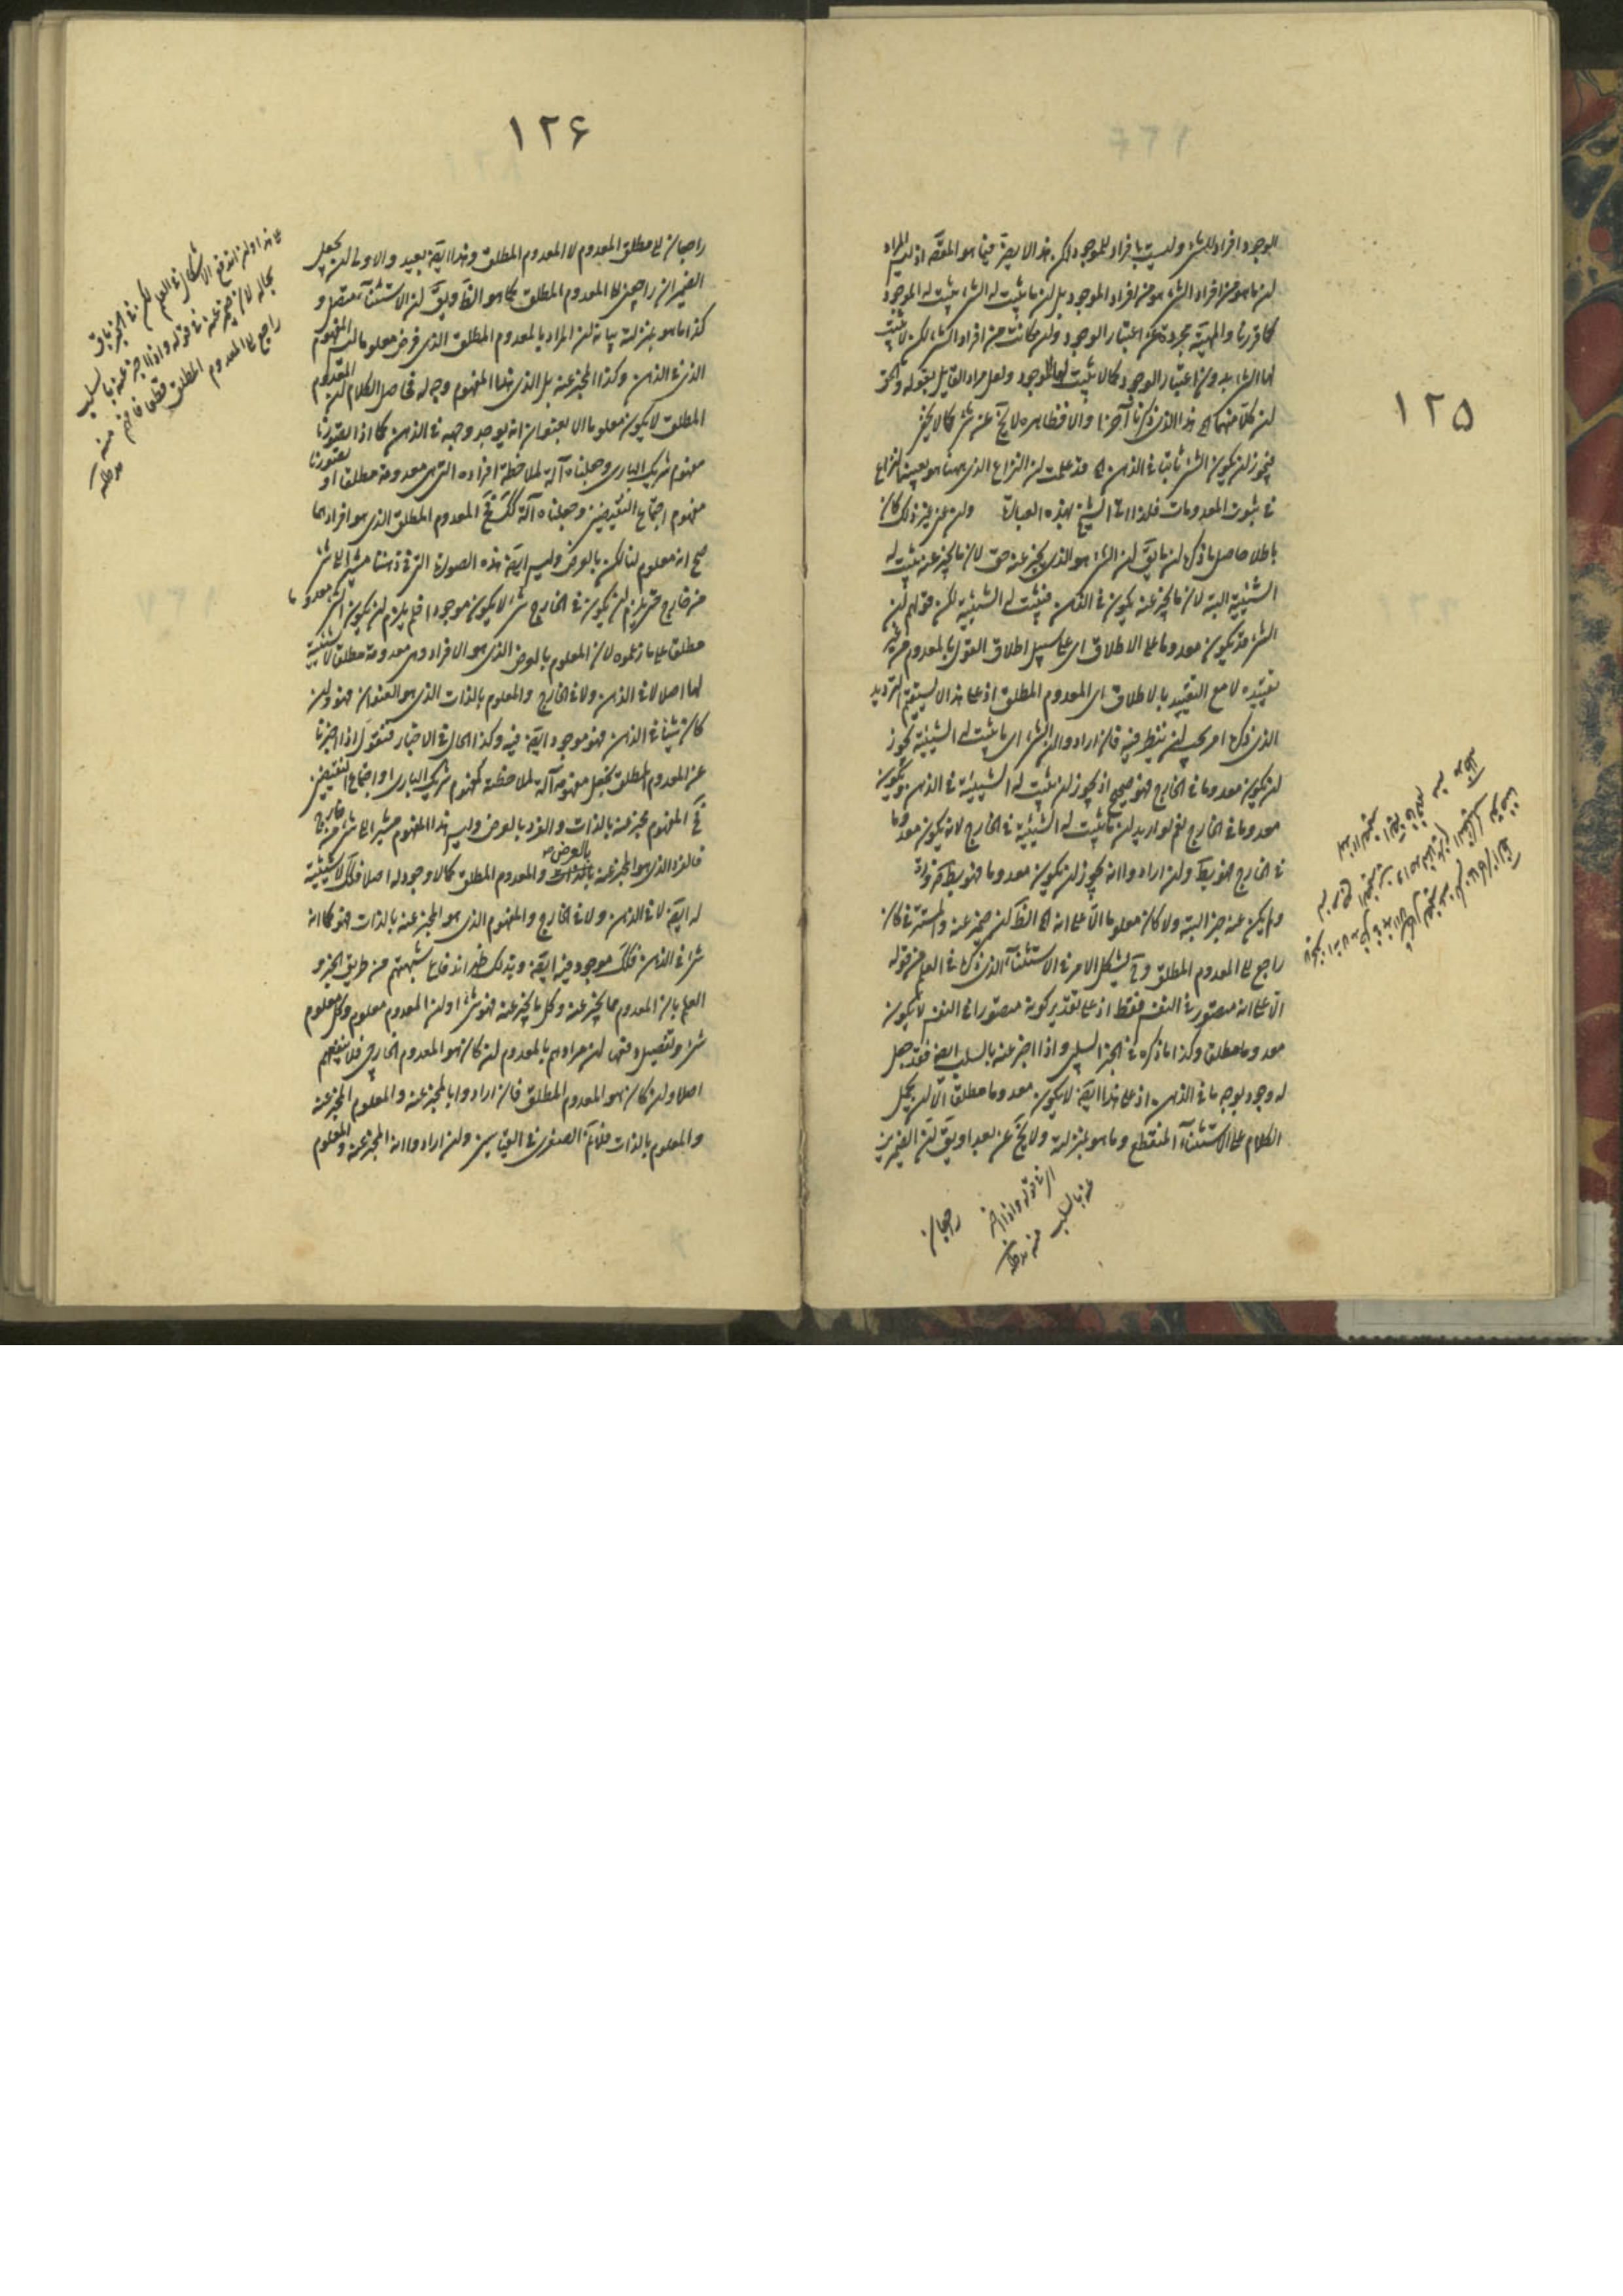 ١٢٥
الوجود افراد للشئ وليست بافراد للموجود لكن هذا لا يضر فيما هو المقصد اذ ليس المراد
ان ما هو من افراد الشئ هو من افراد الموجود بل ان ما يثبت له الشئ يثبت له الموجود
كما قررنا والمهية مجردة عن اعتبار الوجود وان كانت من افراد الشئ لكن لا يثبت
لها الشئ بدون اعتبار الوجود كما لا يثبت لها الموجود ولعل مراد القايل بقوله والحق
ان كلا منهما الى هذا الذى ذكرنا آخرا والا فظاهره لا يخ عن شئ كما لا يخفى
فيجوز ان يكون الشئ ثابتا فى الذهن اه قد علمت ان النزاع الذى ههنا هو بعينه النزاع
فى ثبوت المعدومات فلذا اتى الشيخ بهذه العبارة وان عنى غير ذلك كان
باطلا حاصل ما ذكره ان ما يق ان الشئ هو الذى يخبر عنه حق لان ما يخبر عنه يثبت له
الشيئية البتة لان ما يخبر عنه يكون فى الذهن فيثبت له الشيئية لكن قولهم ان
الشئ قد يكون معدوما على الاطلاق اى على سبيل اطلاق القول بالمعدوم من غير
تقييده لا مع التقييد بالاطلاق اى المعدوم المطلق اذ على هذا لا يستقيم الترديد
الذى ذكره امر يجب ان ينظر فيه فان ارادوا ان الشئ اى ما يثبت له الشيئية يجوز
ان يكون معدوما فى الخارج فهو صحيح اذ يجوز ان يثبت له الشيئية فى الذهن ويكون
معدوما فى الخارج نعم لو اريد ان ما يثبت له الشيئية فى الخارج لانه يكون معدوما
فى الخارج فهو بط وان ارادوا انه يجوز ان يكون معدوما فهو بط
ولم يكن عنه خبر البتة ولا كان معلوما الا على انه اه الظ ان ضمير عنه والمستتر فى كان
راجع الى المعدوم المطلق وح يشكل الامر فى الاستثناء الذى ذكره فى العلم من قوله
الا على انه متصور فى النفس فقط اذ على تقدير كونه متصورا فى النفس لا يكون
معدوما مطلق وكذا ما ذكره فى الخبر السلبى واذا اخبر عنه بالسلب ايضا فقد جعل
له وجود بوجه ما فى الذهن اذ على هذا ايضا لا يكون معدوما مطلق الا ان يحمل
الكلام على الاستثناء المنقطع وما هو بمنزلته ولا يخ عن بعد او يق ان الضميرين
اى فى قوله واذا اخبر
عنه بالسلب
منه مدظله
راجعان
١٢۶
راجعان الى مطلق المعدوم لا المعدوم المطلق وهذا ايضا بعيد والاولى ان يجعل
الضميران راجعين الى المعدوم المطلق كما هو الظ ويق ان الاستثناء متصل و
كذا ما هو بمنزلته بيانه ان المراد بالمعدوم المطلق الذى فرض معلوما ليس المفهوم
الذى فى الذهن وكذا المخبر عنه بل الذى هذا المفهوم وجه له فحاصل الكلام ان المعدوم
المطلق لا يكون معلوما الا بعنوان انه يوجد وجهه فى الذهن كما اذا تصورنا
مفهوم شريك البارى وجعلناه آلة لملاحظة افراده التى هى معدومة مطلقا او تصورنا
مفهوم اجتماع النقيضين وجعلناه آلة كك فح المعدوم المطلق الذى هو افرادهما
صح انه معلوم لنا لكن بالعرض وليس ايضا هذه الصورة التى فى ذهننا مشيرا الى شئ
من خارج حتى يلزم ان يكون فى الخارج شئ لا يكون موجودا فلم يلزم ان يكون الشئ معدوما
مطلق على ما زعموه لان المعلوم بالعرض الذى هو الافراد وهى معدومة مطلق لا شيئية
لها اصلا لا فى الذهن ولا فى الخارج والمعلوم بالذات الذى هو العنوان فهو وان
كان شيئا فى الذهن فهو موجود ايضا فيه وكذا الحال فى الاخبار فنقول اذا اخبرنا
عن المعدوم المطلق بجعل مفهومه آلة لملاحظته كمفهوم شريك البارى او اجتماع النقيضين
فح المفهوم مخبر عنه بالذات والفرد بالعرض وليس هذا المفهوم مشيرا الى شئ من خارج
فالفرد الذى هو المخبر عنه بالعرض والمعدوم المطلق كما لا وجود له اصلا فكك لا شيئية
له ايضا لا فى الذهن ولا فى الخارج والمفهوم الذى هو المخبر عنه بالذات فهو كما انه
شئ فى الذهن فكك موجود فيه ايضا وبذلك ظهر اندفاع شبهتهم من طريق الخبر و
العلم بان المعدوم مما يخبر عنه وكل ما يخبر عنه فهو شئ او ان المعدوم معلوم وكل معلوم
شئ وتفصيل دفعها ان مرادهم بالمعدوم ان كان هو المعدوم الخارجى فلا ينفعهم
اصلا وان كان هو المعدوم المطلق فان ارادوا بالمخبر عنه والمعلوم المخبر عنه
والمعلوم بالذات فلا نم الصغرى فى القياسين وان ارادوا انه المخبر عنه والمعلوم
على هذا وان اندفع الاشكال فى العلم لكن فى الخبر باق
بحاله لان ضمير عنه فى قوله واذا اخبر عنه بالسلب
راجع الى المعدوم المطلق قطعا فافهم منه
مدظله